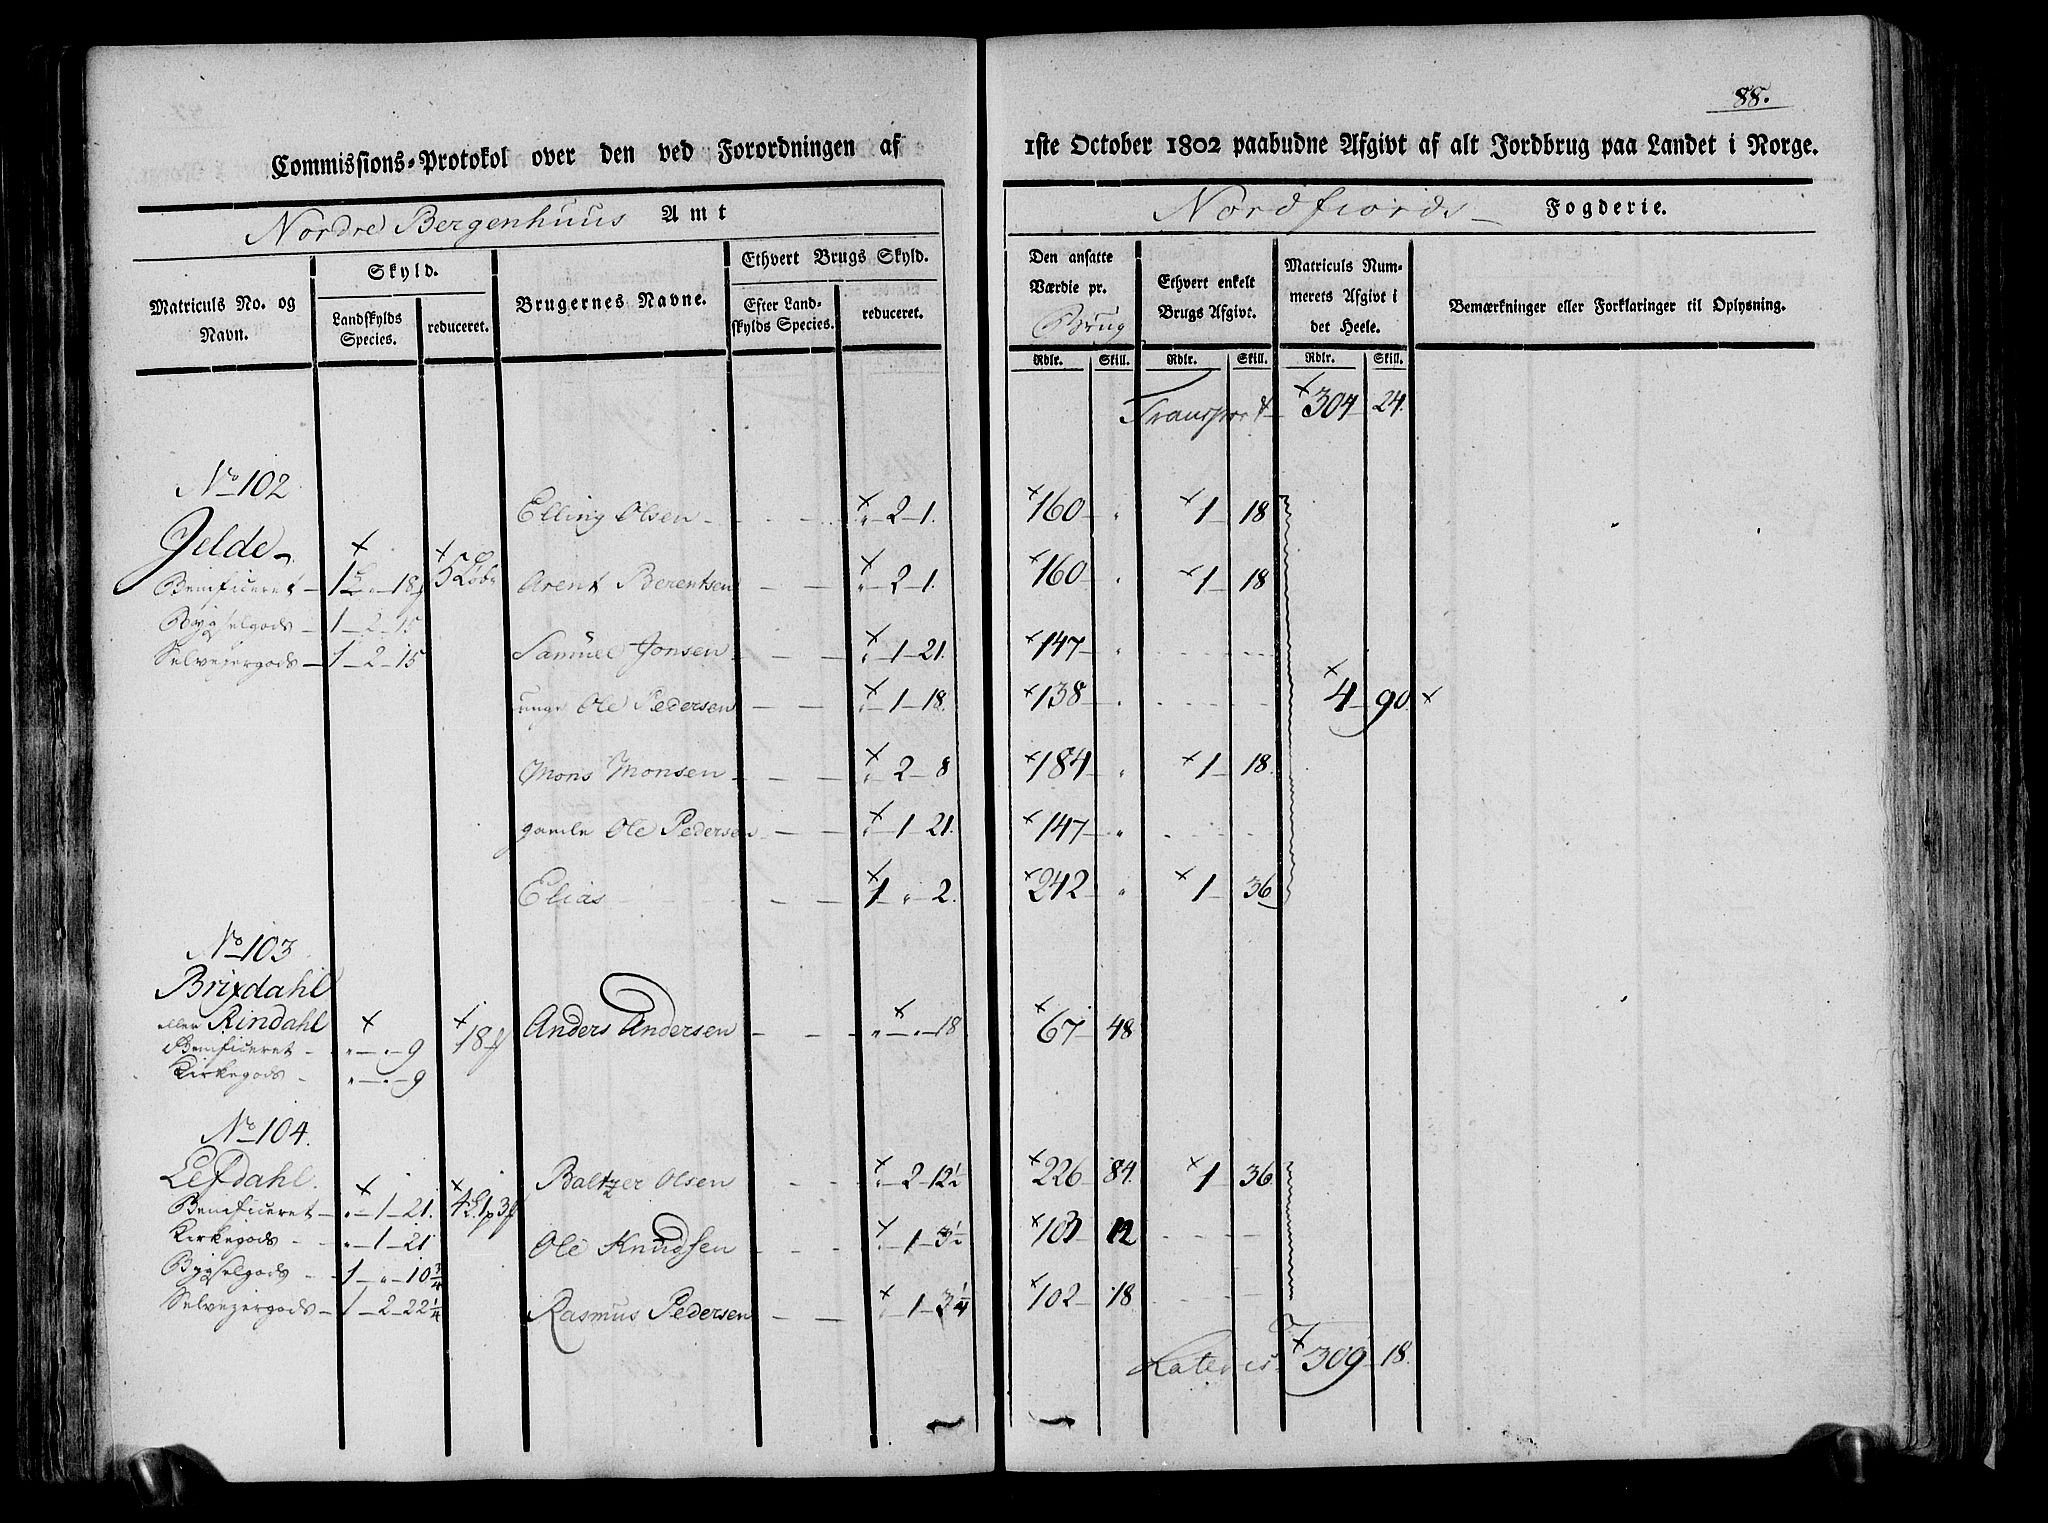 88.
Commissions-Protokol over den ved Forordningen af 1ste October 1802 paabudne Afgivt af alt Jordbrug paa Landet i Norge.
Nordre Bergenhuus Amt
Nordfiords Fogderie.
Matriculs No. og Navn.
Skyld.
Landskylds Species.
reduceret.
Brugernes Navne.
Ethvert Brugs Skyld.
Efter Landskylds Species.
reduceret.
Den ansatte Værdie pr. Brug
Rdlr. Skill.
Ethvert enkelt Brugs Afgivt.
Rdlr. Skill.
Matriculs Nummerets Afgivt i det Heele.
Rdlr. Skill.
Bemærkninger eller Forklaringer til Oplysning.
Transport 304 24.
No 102
Elling Olsen " 2 1. 160 " 1 18
Jelde
Beneficeret 1 " 18 5 Løber Arent Berentsen " 2 1. 160 " 1 18
Bygselgods 1 2 15
Selveiergods 1 2 15 Samuel Jonsen " 1 21. 147 "
unge Ole Pedersen " 1 18. 138 " 4 90.
Mons Monsen " 2 8 184 " 1 18.
gamle Ole Pedersen " 1 21. 147 "
Elias 1 " 2. 242 " 1 36
No 103
Brixdahl
eller Rindahl 18 Anders Andersen " " 18 67 48
Beneficeret " " 9
Kirkegods " " 9
No 104.
Lefdahl. Baltzer Olsen " 2 12½ 226 84. 1 36.
Beneficeret " 1 21. 4 1 3
Kirkegods " 1 21 Ole Knudsen " 1 3½ 103 12
Bygselgods 1 " 10¾
Selveiergods 1 2 22¼ Rasmus Pedersen " 1 3¼ 102 18
Lateris 309 18.